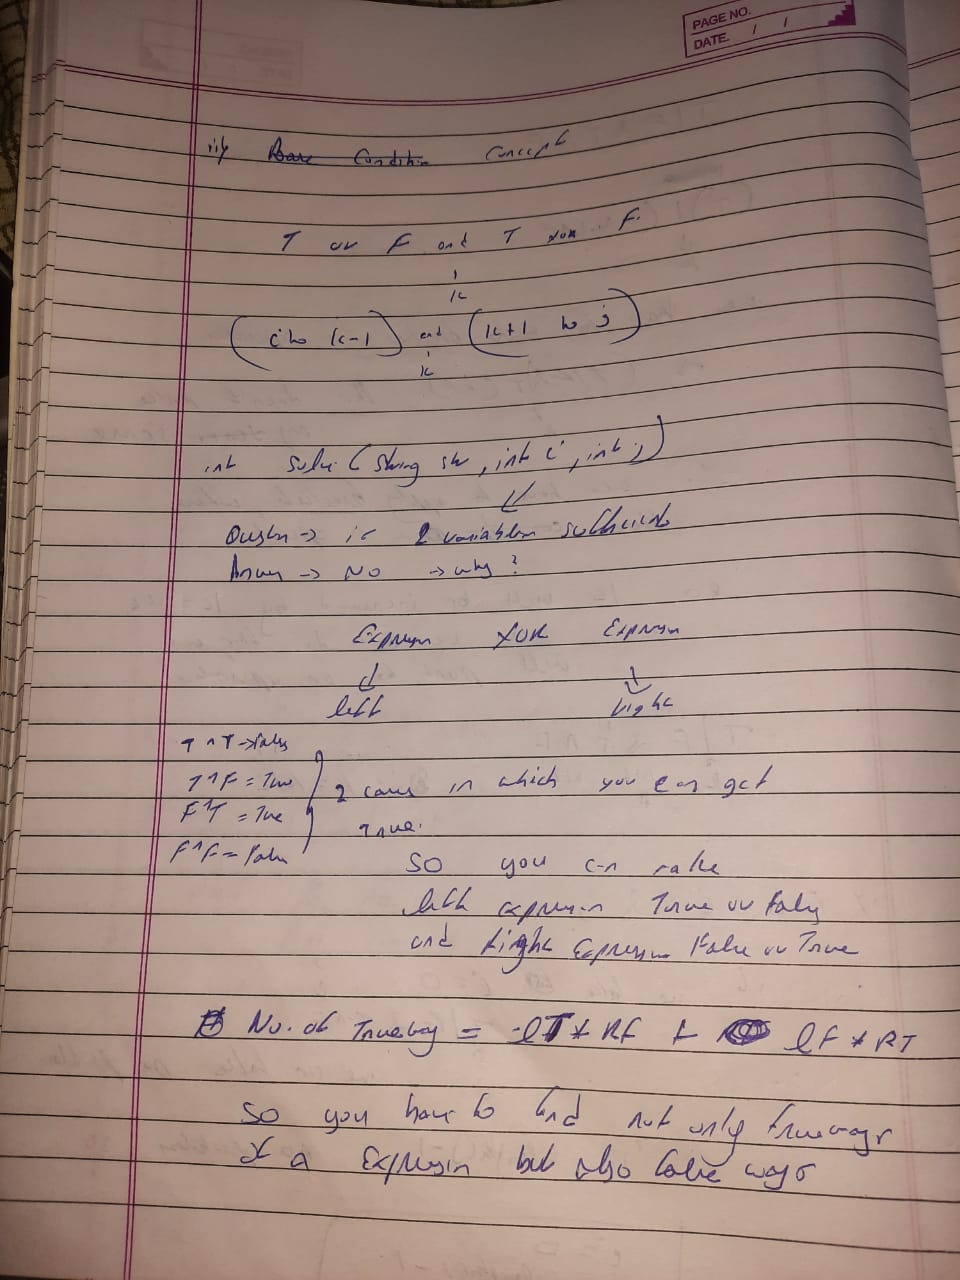 PAGE NO.
DATE / /
iii) Base Condition Concept
T or F and T xor F.
k
(i to k-1) and (k+1 to j)
k
int solve (string str, int i, int j)
Question → is 2 variables sufficient
Answer → NO → why?
Expression XOR Expression
left Right
T ^ T → False
T ^ F = True
F ^ T = True
F ^ F = False
2 cases in which you can get
True.
SO you can make
left expression True or False
and Right Expression False or True
No. of Trueway = lT * RF + lF * RT
So you have to find not only trueways
of a Expression but also false ways